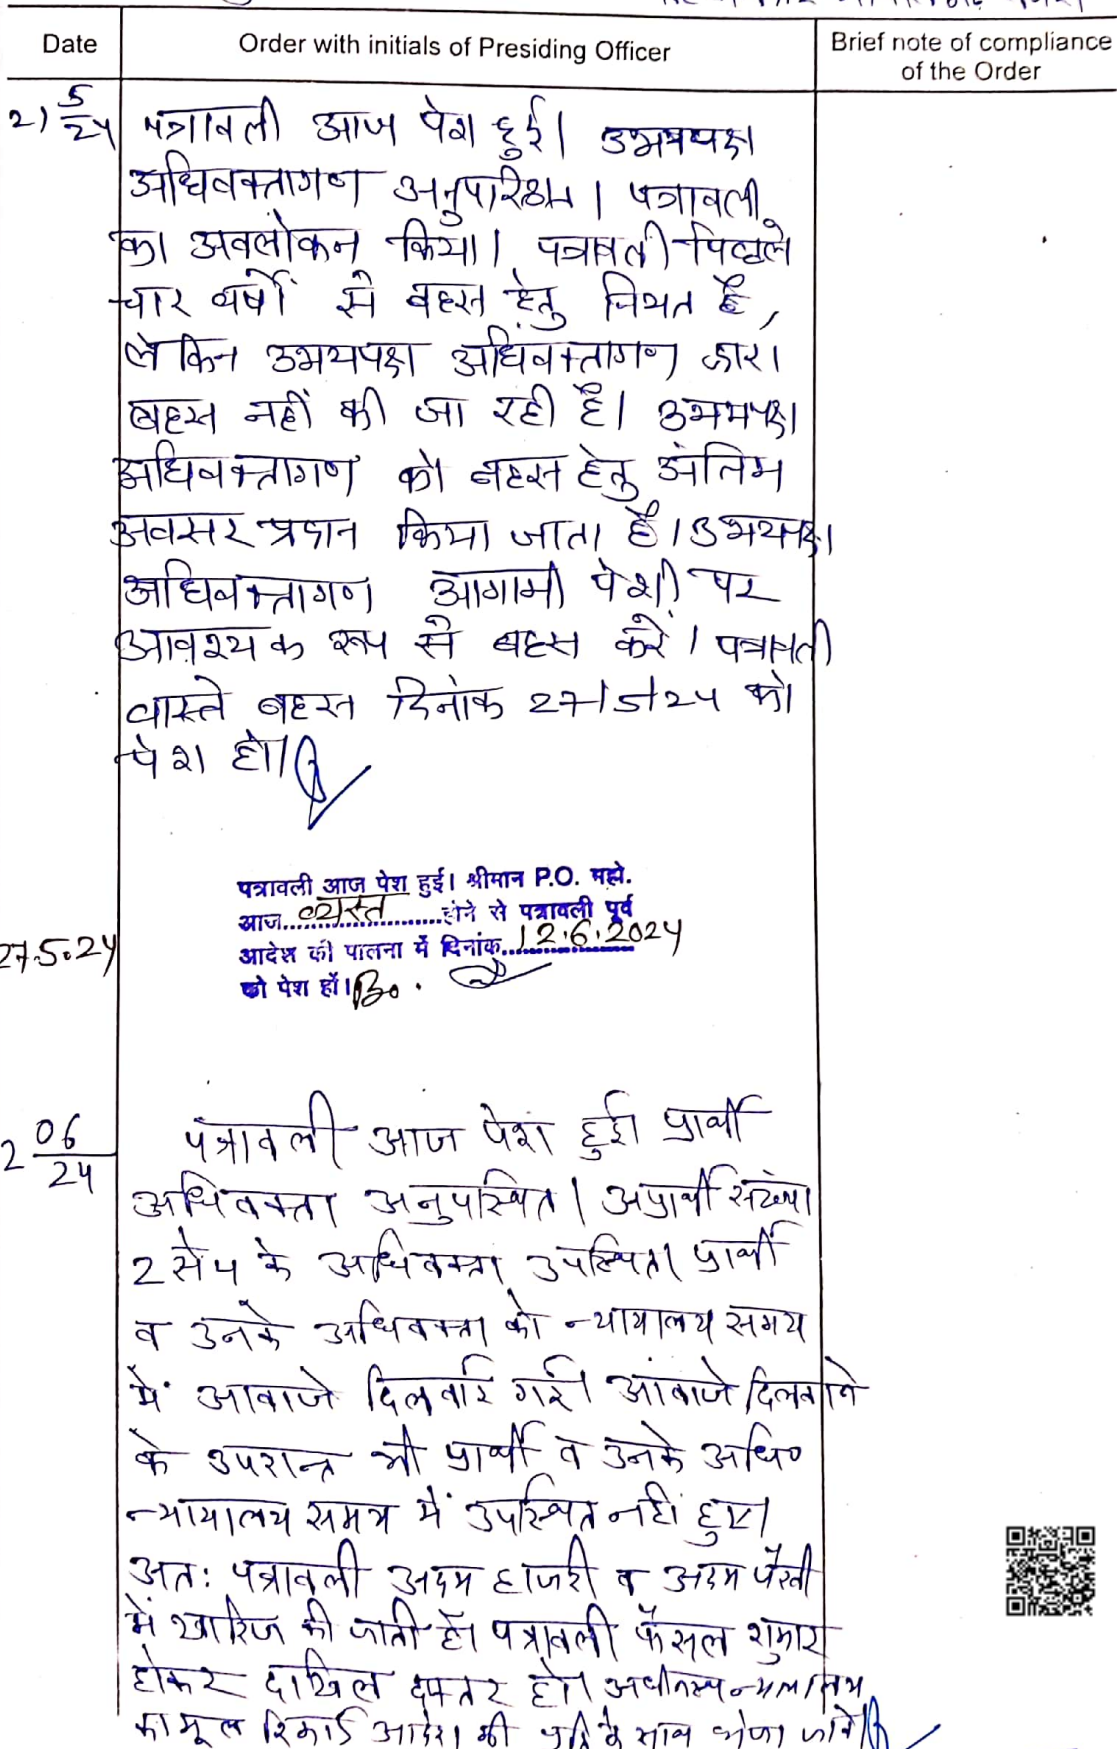 Date
Order with initials of Presiding Officer
Brief note of compliance
of the Order
21 5/24
पत्रावली आज पेश हुई। उभयपक्ष
अधिवक्तागण अनुपस्थित। पत्रावली
का अवलोकन किया। पत्रावली पिछले
चार वर्षों से बहस हेतु नियत है,
लेकिन उभयपक्ष अधिवक्तागण द्वारा
बहस नहीं की जा रही है। उभयपक्ष
अधिवक्तागण को बहस हेतु अंतिम
अवसर प्रदान किया जाता है। उभयपक्ष
अधिवक्तागण आगामी पेशी पर
आवश्यक रूप से बहस करें। पत्रावली
वास्ते बहस दिनांक 27/5/24 को
पेश हो।
27.5.24
पत्रावली आज पेश हुई। श्रीमान P.O. महो.
आज..व्यस्त..होने से पत्रावली पूर्व
आदेश की पालना में दिनांक..12.6.2024
को पेश हों।
2 06/24
पत्रावली आज पेश हुई। प्रार्थी
अधिवक्ता अनुपस्थित। अप्रार्थी संख्या
2 से 4 के अधिवक्ता उपस्थित। प्रार्थी
व उनके अधिवक्ता को न्यायालय समय
में आवाजे दिलवाई गई। आवाजे दिलवाने
के उपरान्त भी प्रार्थी व उनके अधि०
न्यायालय समय में उपस्थित नहीं हुए।
अतः पत्रावली अदम हाजरी व अदम पैरवी
में खारिज की जाती है। पत्रावली फैसल शुमार
होकर दाखिल दफ्तर हो। अधीनस्थ न्यायालय
का मूल रिकार्ड आदेश की प्रति के साथ भेजा जावे।